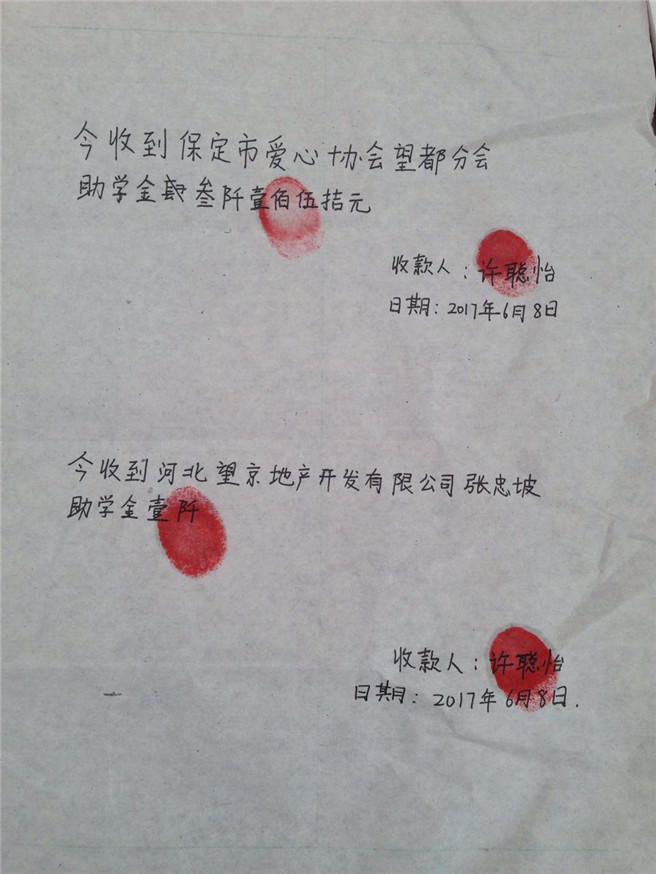 今收到保定市爱心协会望都分会
助学金叁阡壹佰伍拮元
收款人：许聪怡
日期：2017年6月8日
今收到河北望京地产开发有限公司张忠坡
助学金壹阡
收款人：许聪怡
日期：2017年6月8日.